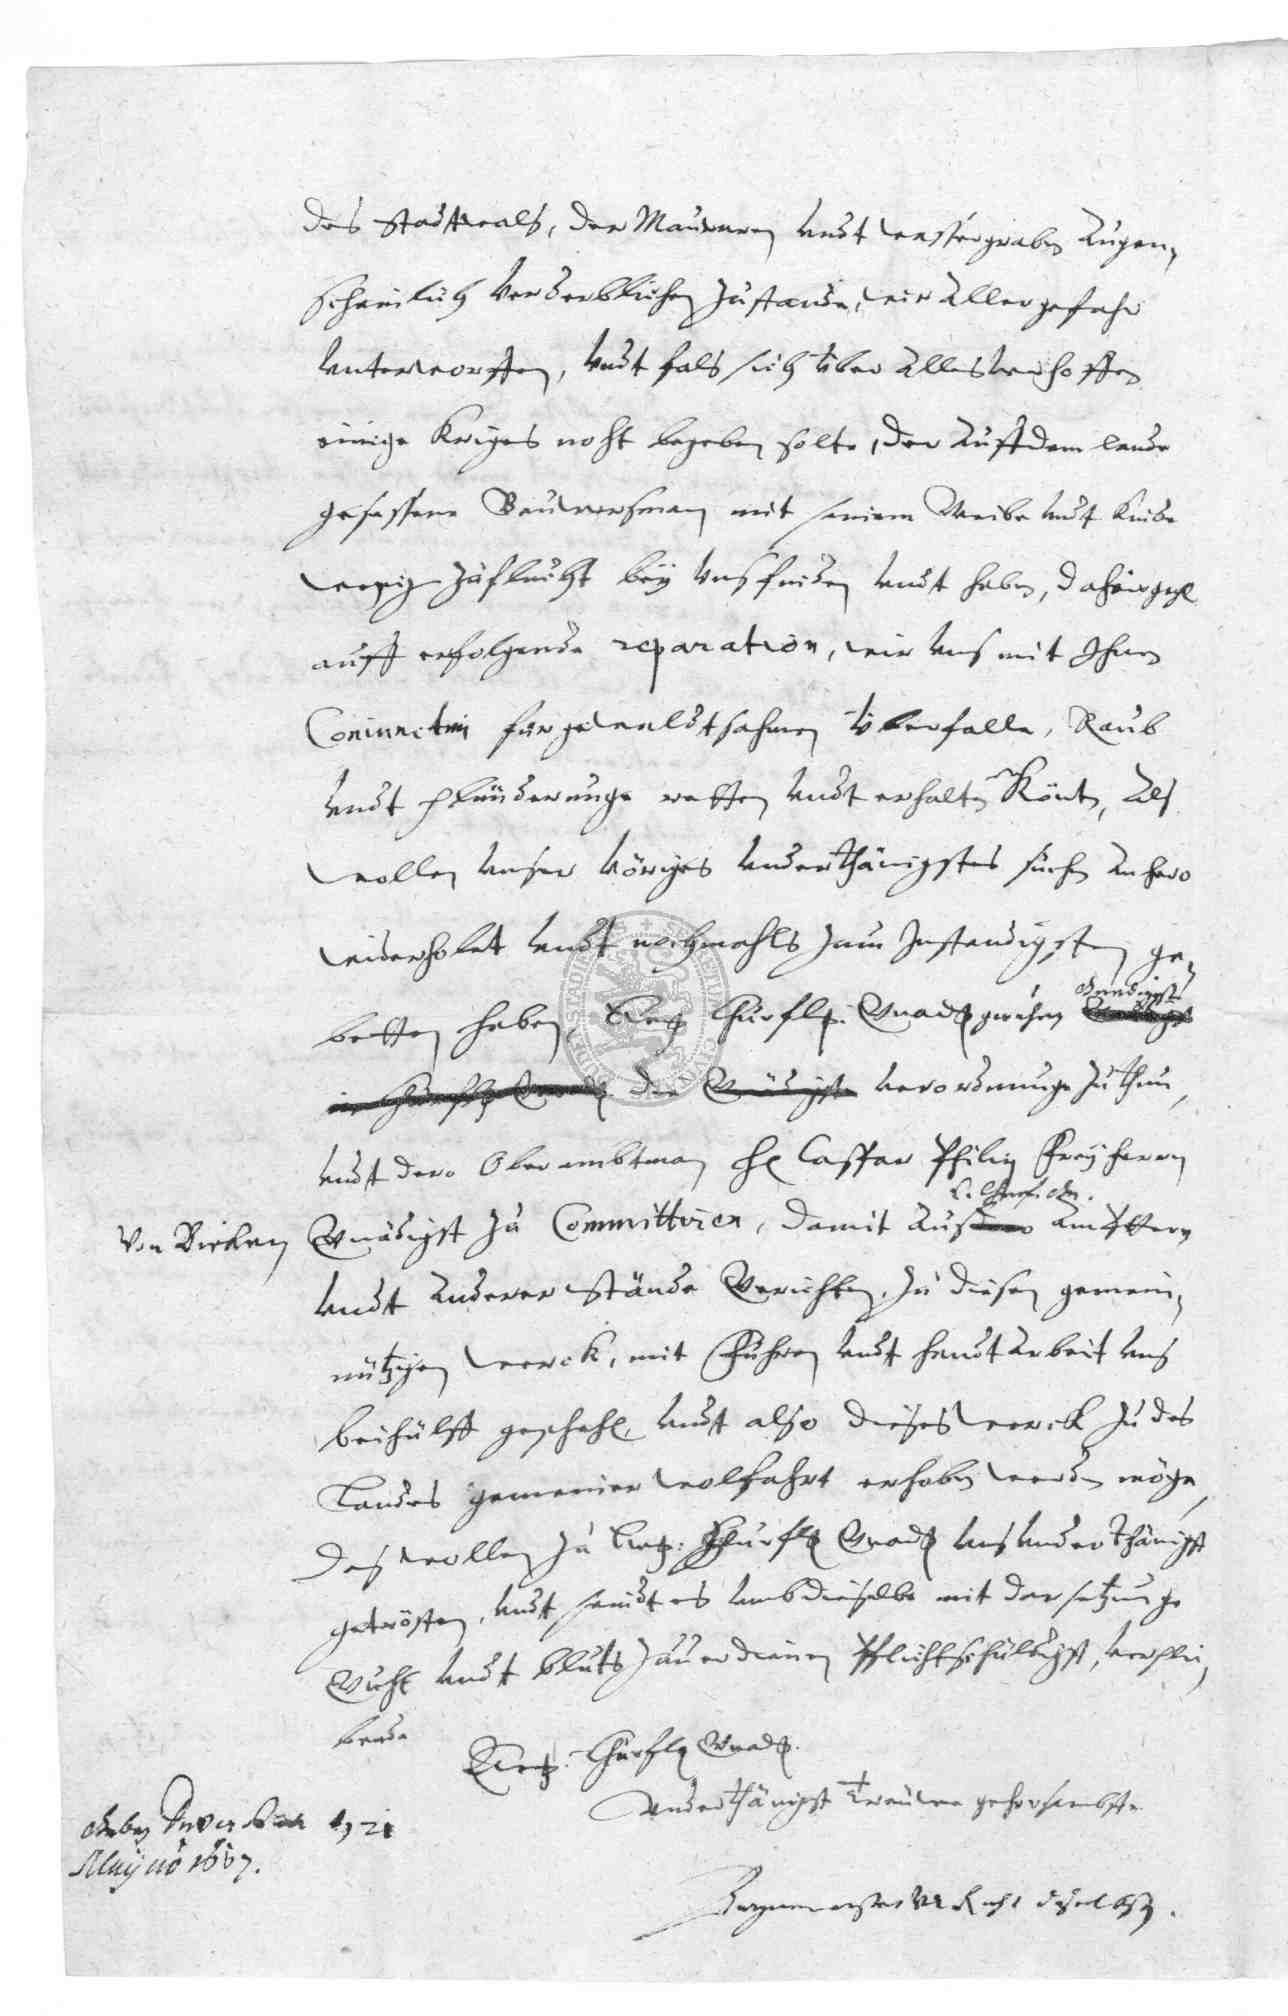 des Stadtwals, der Mauren undt wassergraben Augen,
scheinlich verderblichen Zustande, wir Aller gefahr
unterworffen, undt fals sich über Alles verhoffen
einige Kriges noht begeben solte, der Auff dem lande
gesessene Bauwersman mit seinem Weibe undt Kinde
wenig Zuflucht bey uns finden undt haben, dahingegen
auff erfolgende reparation, wir uns mit Ihnen
Coniunctim für gewaldtsahmen überfalle, Raub
undt plünderunge retten undt erhalten Könten, Als
wollen unser voriges underthänigstes suchen anhero
widerholet undt nochmahls zum Instendigsten ge,
betten haben, Ew. Churfl. Gnad. geruhen
gnedigst
die verordnunge zu thun,
undt dero Oberambtman H. Caspar Philip Freyherrn
Gnädigst zu Committiren, damit Aus Ämbttern
undt Anderer Stände Gerichten, zu diesen gemein,
nützigen werck, mit Fuhren undt handt Arbeit uns
beihülff geschehe, undt also dieses werck zu des
Landes gemeiner wolfahrt erhoben werden möge,
des wollen zu Ew. Churfl. Gnad. uns underthänigst
getrösten, undt seindt es umb dieselbe mit dersetzunge
Guhts undt bluts zu verdienen Pflichtschuldigst, verplei,
bende
Ew. Churfl. Gnad.
underthänigst treuwe gehorsambste
Geben Duderstadt 21
Maij ao 1667.
Burgermeister und Raht daselbst.